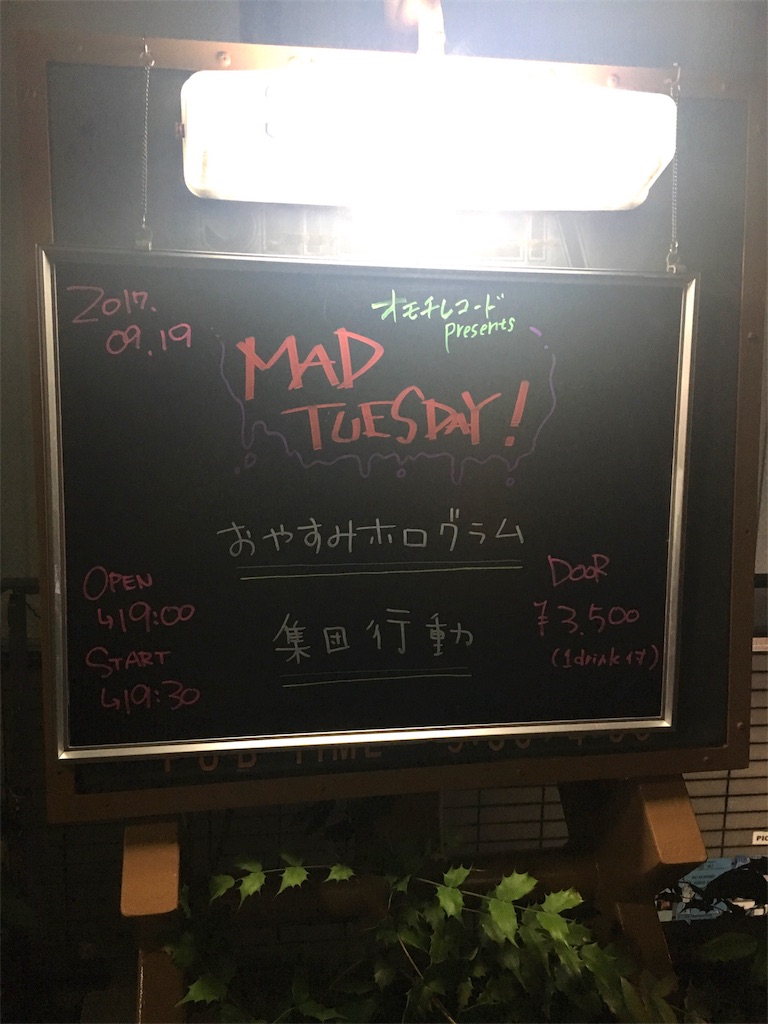 2017.
09.19
オモチレコード
presents
MAD
TUESDAY!
おやすみホログラム
集団行動
OPEN
↳19:00
START
↳19:30
DOOR
¥3.500
(1drink付)
PUB TIME